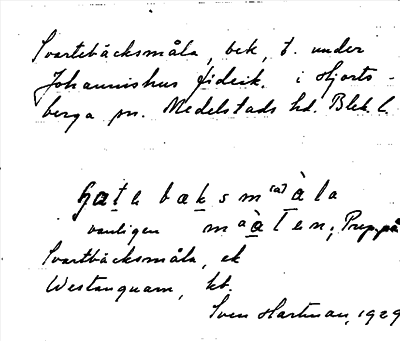 Svartebäcksmåla, bek, t. under
Johannishus fideik. i Hjorts-
berga sn. Medelstads hd. Blek. l.
baksm(a)àla
vanligen maàten; Prep. på
Svartbäcksmåla, ek
Westanqvarn, kt.
Sven Hartman, 1929